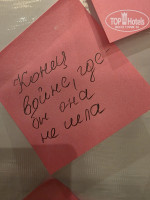 TOP Hotels
Конец
войне, где
бы она
не шла